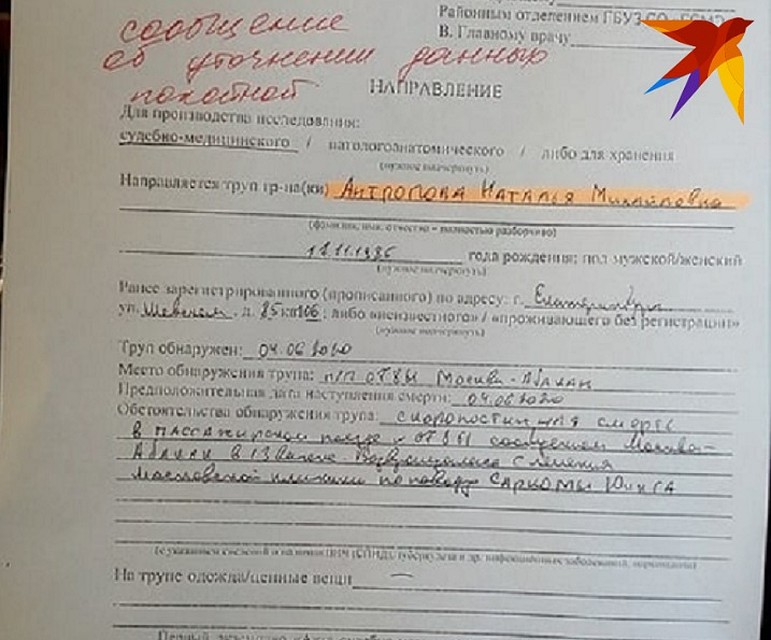 Районным отделением ГБУЗ СО
В. Главному врачу
сообщение
об уточнении данных
НАПРАВЛЕНИЕ
Для производства исследования:
судебно-медицинского / патологоанатомического / либо для хранения
(нужное подчеркнуть)
Направляется труп гр-на(ки) Антропова Наталья Михайловна
(фамилия, имя, отчество – полностью разборчиво)
года рождения; пол мужской/женский
(нужное подчеркнуть)
Ранее зарегистрированного (прописанного) по адресу: г. Екатеринбург
ул. д. 85 кв 106; либо «неизвестного» / «проживающего без регистрации»
(нужное подчеркнуть)
Труп обнаружен: 04.06 2020
Место обнаружения трупа: п/п 078Ы Москва - Абакан
Предположительная дата наступления смерти: 04.06 2020
Обстоятельства обнаружения трупа: скоропостижная смерть
в пассажирском поезде сообщением Москва-
Абакан в 13 вагоне Возвращалась с лечения
Московской клиники по поводу Саркомы Юинга
На трупе одежда/ценные вещи —